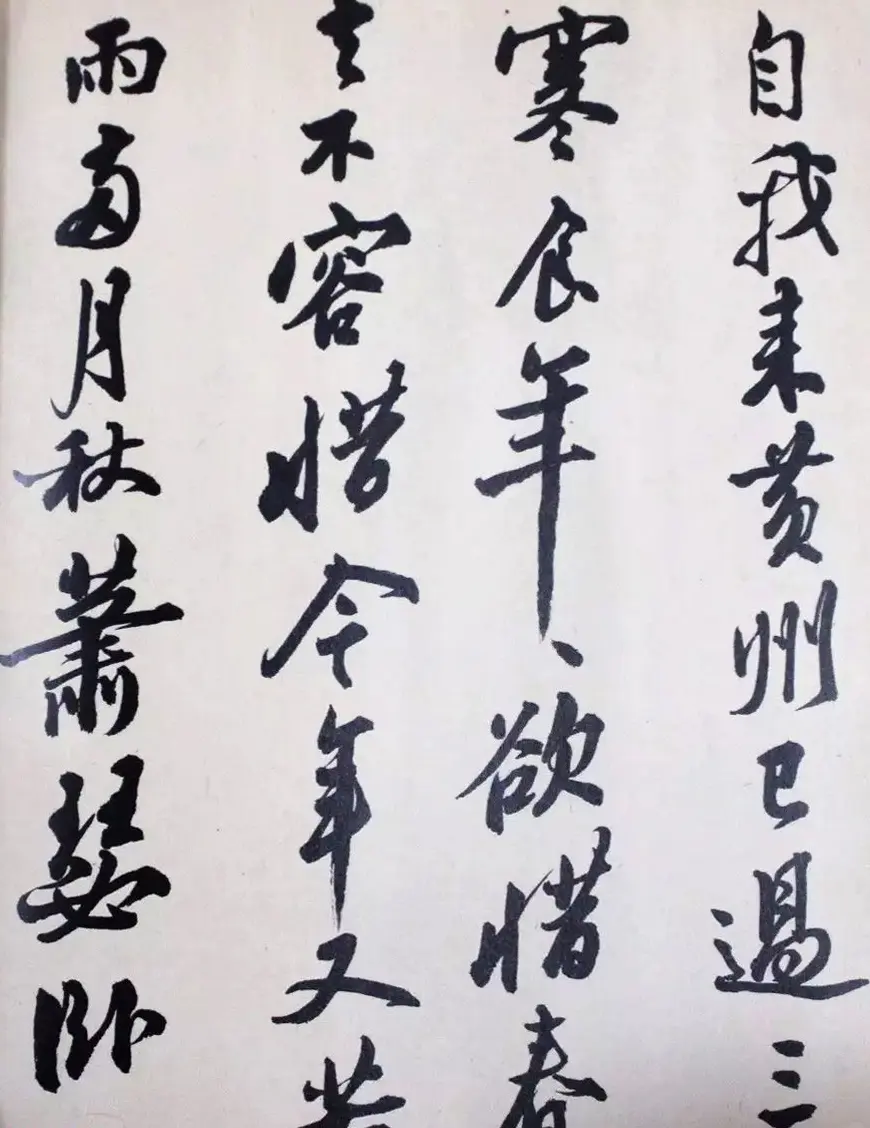 自我来黄州已過三
寒食年、欲惜春
去不容惜今年又苦
雨兩月秋蕭瑟卧